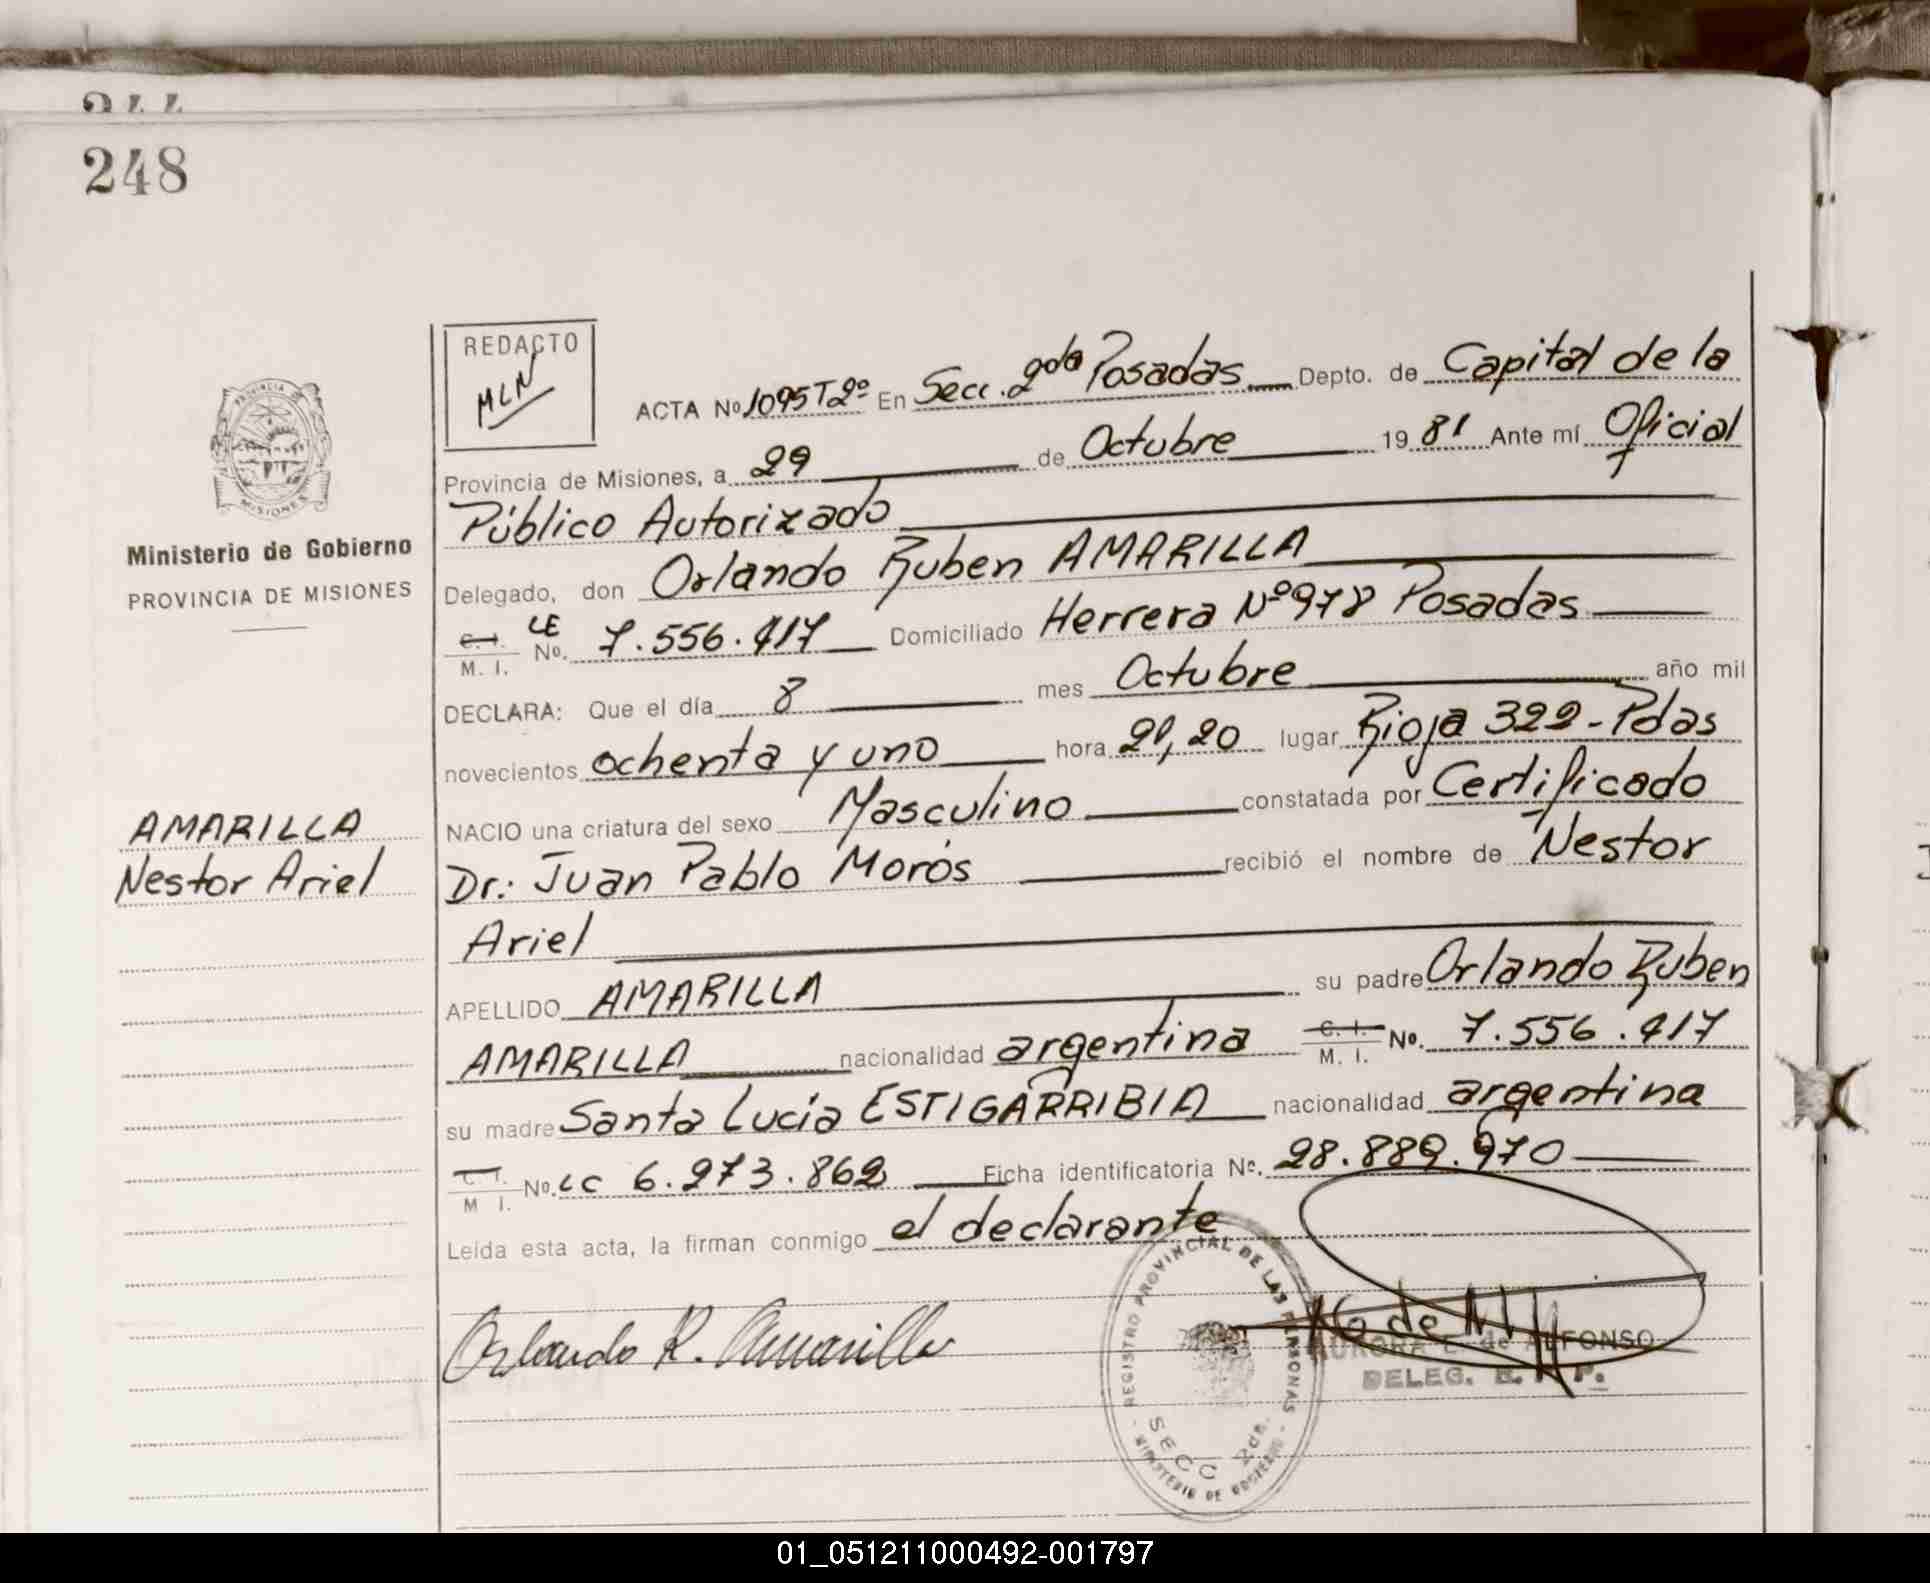 248
REDACTO
MLN
ACTA No 1095 T2º En Secc. 2da Posadas Depto. de Capital de la
Provincia de Misiones, a 29 de Octubre 19 81 Ante mí Oficial
Público Autorizado
Delegado, don Orlando Ruben AMARILLA
C. I. LE
M. I. No. 7.556.417 Domiciliado Herrera Nº 978 Posadas
DECLARA: Que el día 8 mes Octubre año mil
novecientos ochenta y uno hora 21,20 lugar Rioja 322-Pdas
NACIO una criatura del sexo Masculino constatada por Certificado
Dr: Juan Pablo Morós recibió el nombre de Nestor
Ariel
APELLIDO AMARILLA su padre Orlando Ruben
AMARILLA nacionalidad argentina C. I. M. I. No. 7.556.417
su madre Santa Lucía ESTIGARRIBIA nacionalidad argentina
C. I. M I. No. LC 6.273.862 Ficha identificatoria No. 28.889.970
Leída esta acta, la firman conmigo el declarante
Orlando R. Amarilla
PROVINCIA
MISIONES
Ministerio de Gobierno
PROVINCIA DE MISIONES
AMARILLA
Nestor Ariel
REGISTRO PROVINCIAL DE LAS PERSONAS
SECC 2da.
MINISTERIO DE GOBIERNO
AURORA E. de ALFONSO
DELEG. R. P.
01_051211000492-001797